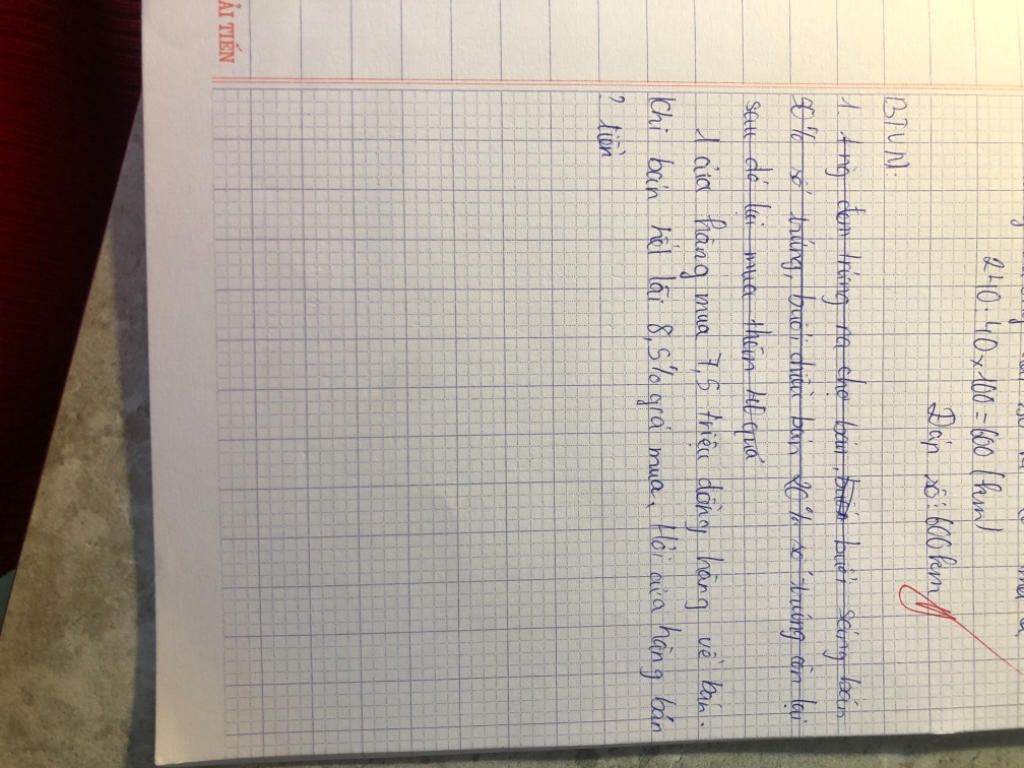 ẢI TIẾN
240:40×100=600 (km)
Đáp số: 600km
BTVN.
1. 1 ng đem trứng ra chợ bán, buổi sáng bán
90% số trứng, buổi chiều bán 20% số trứng còn lại
sau đó lại mua thêm 40 quả
1 cửa hàng mua 7,5 triệu đồng hàng về bán.
Khi bán hết lãi 8,5% giá mua. Hỏi cửa hàng bán
? tiền